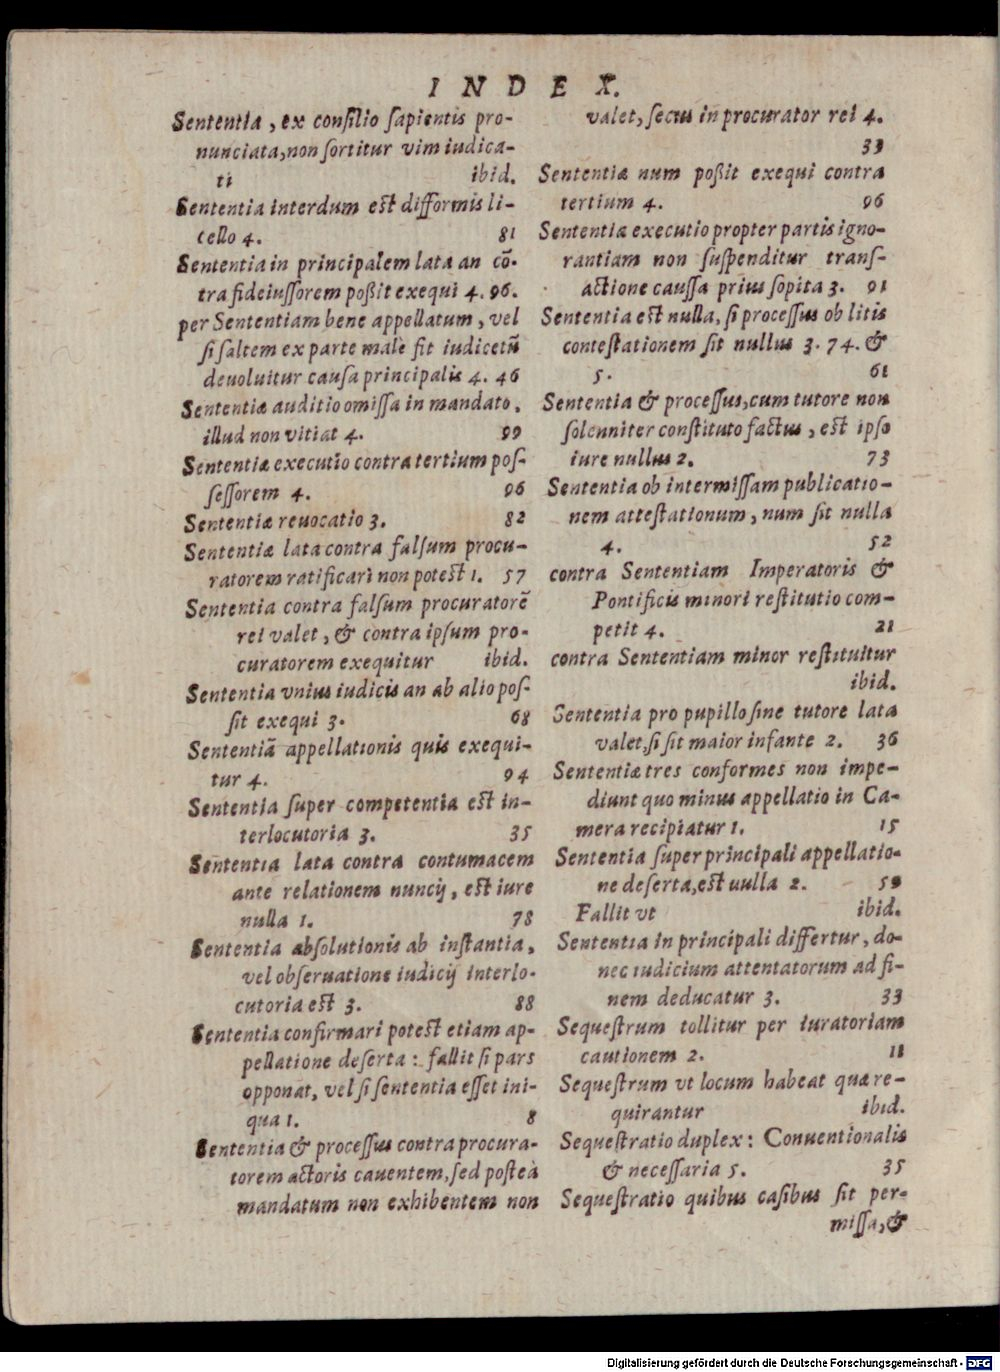 INDEX.
Sententia, ex consilio sapientis pro-
nunciata, non sortitur vim iudica-
ti ibid.
Sententia interdum est difformis li-
cello 4. 81
Sententia in principalem lata an cō-
tra fideiussorem poßit exequi 4. 96.
per Sententiam bene appellatum, vel
si saltem ex parte male fit iudicetū
deuoluitur causa principalis 4. 46
Sententiæ auditio omissa in mandato,
illud non vitiat 4. 99
Sententiæ executio contra tertium pos-
sessorem 4. 96
Sententiæ reuocatio 3. 82
Sententiæ lata contra falsum procu-
ratorem ratificari non potest 1. 57
Sententia contra falsum procuratorē
rei valet, & contra ipsum pro-
curatorem exequitur ibid.
Sententia vnius iudicis an ab alio pos-
sit exequi 3. 68
Sententiā appellationis quis exequi-
tur 4. 94
Sententia super competentia est in-
terlocutoria 3. 35
Sententia lata contra contumacem
ante relationem nuncij, est iure
nulla 1. 78
Sententia absolutionis ab instantia,
vel obseruatione iudicij interlo-
cutoria est 3. 88
Sententia confirmari potest etiam ap-
pellatione deserta: fallit si pars
opponat, vel si sententia esset ini-
qua 1. 8
Sententia & processus contra procura-
torem actoris cauentem, sed posteà
mandatum non exhibentem non
valet, secus in procurator rei 4.
33
Sententiæ num poßit exequi contra
tertium 4. 96
Sententiæ executio propter partis igno-
rantiam non suspenditur trans-
actione caussa prius sopita 3. 91
Sententia est nulla, si processus ob litis
contestationem sit nullus 3. 74. &
5. 61
Sententia & processus, cum tutore non
solenniter constituto factus, est ipso
iure nullus 2. 73
Sententia ob intermissam publicatio-
nem attestationum, num sit nulla
4. 52
contra Sententiam Imperatoris &
Pontificis minori restitutio com-
petit 4. 21
contra Sententiam minor restituitur
ibid.
Sententia pro pupillo sine tutore lata
valet, si sit maior infante 2. 36
Sententiæ tres conformes non impe-
diunt quo minus appellatio in Ca-
mera recipiatur 1. 15
Sententia super principali appellatio-
ne deserta, est uulla 2. 59
Fallit vt ibid.
Sententia in principali differtur, do-
nec iudicium attentatorum ad fi-
nem deducatur 3. 33
Sequestrum tollitur per iuratoriam
cautionem 2. 11
Sequestrum vt locum habeat quæ re-
quirantur ibid.
Sequestratio duplex: Conuentionalis
& necessaria 5. 35
Sequestratio quibus casibus sit per-
missa, &
Digitalisierung gefördert durch die Deutsche Forschungsgemeinschaft - DFG